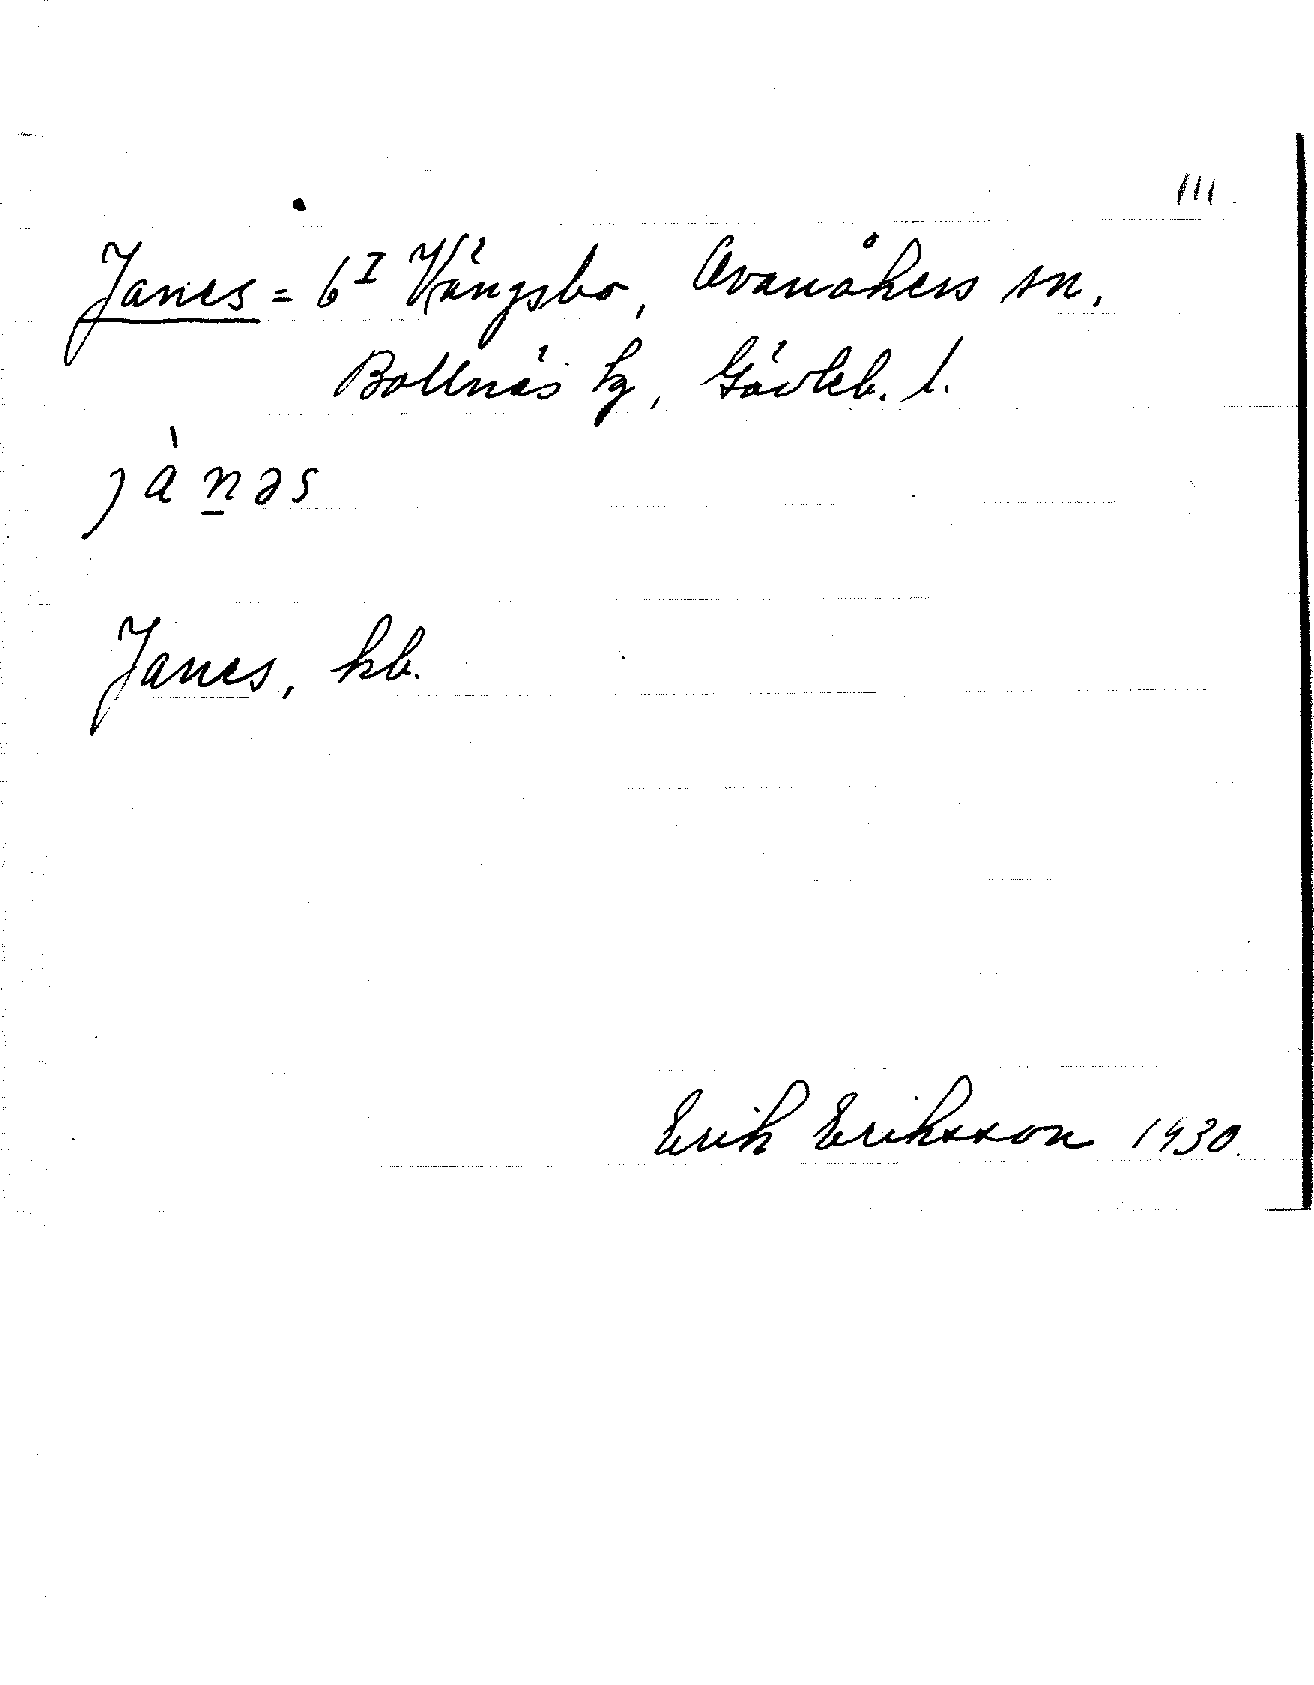 111.
Janes = 6ᴵ Vängsbo, Ovanåkers sn,
Bollnäs tg, Gävleb. l.
jànəs
Janes, kb.
Erik Eriksson 1930.